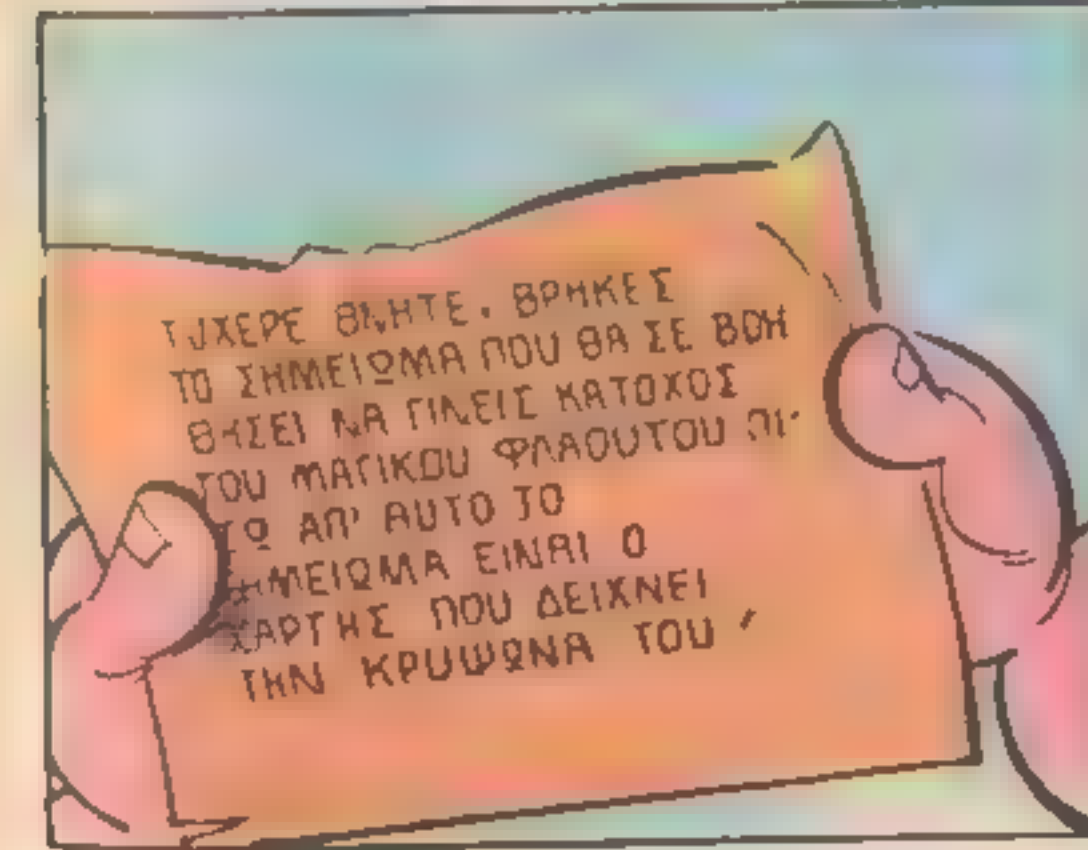 ΤΥΧΕΡΕ ΘΝΗΤΕ. ΒΡΗΚΕΣ
ΤΟ ΣΗΜΕΙΩΜΑ ΠΟΥ ΘΑ ΣΕ ΒΟΗ
ΘΗΣΕΙ ΝΑ ΓΙΝΕΙΣ ΚΑΤΟΧΟΣ
ΤΟΥ ΜΑΓΙΚΟΥ ΦΛΑΟΥΤΟΥ ΠΙ-
ΣΩ ΑΠ' ΑΥΤΟ ΤΟ
ΣΗΜΕΙΩΜΑ ΕΙΝΑΙ Ο
ΧΑΡΤΗΣ ΠΟΥ ΔΕΙΧΝΕΙ
ΤΗΝ ΚΡΥΨΩΝΑ ΤΟΥ '